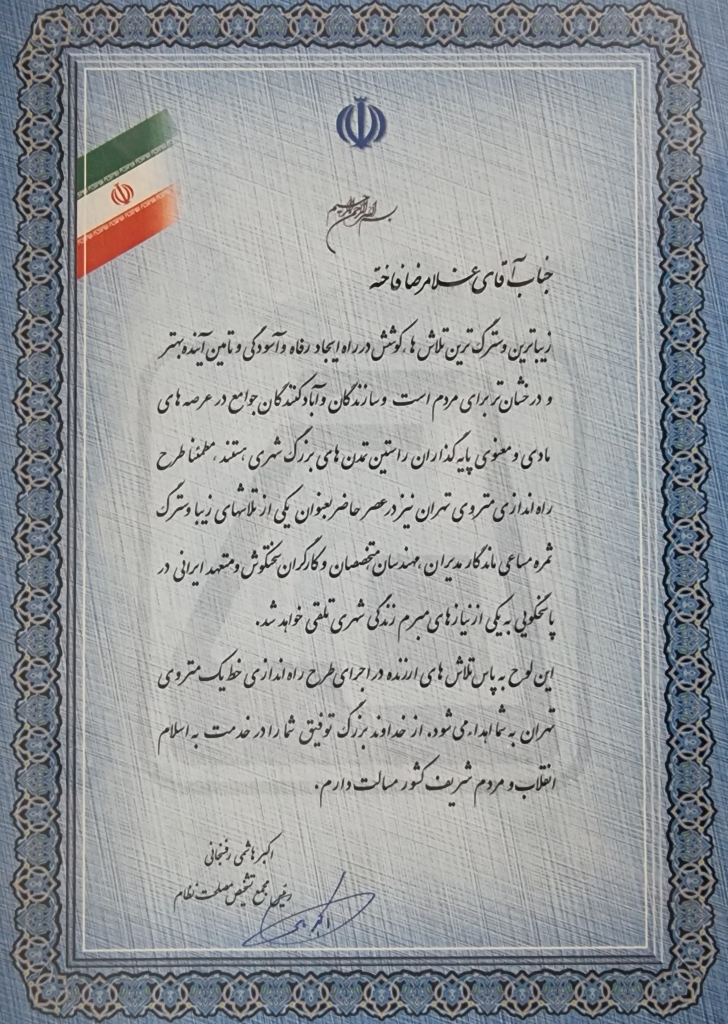 بسم الله الرحمن الرحیم
جناب آقای غلامرضا فاخته
زیباترین و سترگ ترین تلاش ها، کوشش در راه ایجاد رفاه و آسودگی و تامین آینده بهتر
و درخشان تر برای مردم است و سازندگان و آبادکنندگان جوامع در عرصه های
مادی و معنوی پایه گذاران راستین تمدن های بزرگ شهری هستند، مطمئنا طرح
راه اندازی متروی تهران نیز در عصر حاضر بعنوان یکی از تلاشهای زیبا و سترگ
ثمره مساعی ماندگار مدیران، مهندسان، متخصصان و کارگران سختکوش و متعهد ایرانی در
پاسخگویی به یکی از نیازهای مبرم زندگی شهری تلقی خواهد شد.
این لوح به پاس تلاش های ارزنده در اجرای طرح راه اندازی خط یک متروی
تهران به شما اهداء می شود. از خداوند بزرگ توفیق شما را در خدمت به اسلام
انقلاب و مردم شریف کشور مسالت دارم.
اکبر هاشمی رفسنجانی
رئیس مجمع تشخیص مصلحت نظام